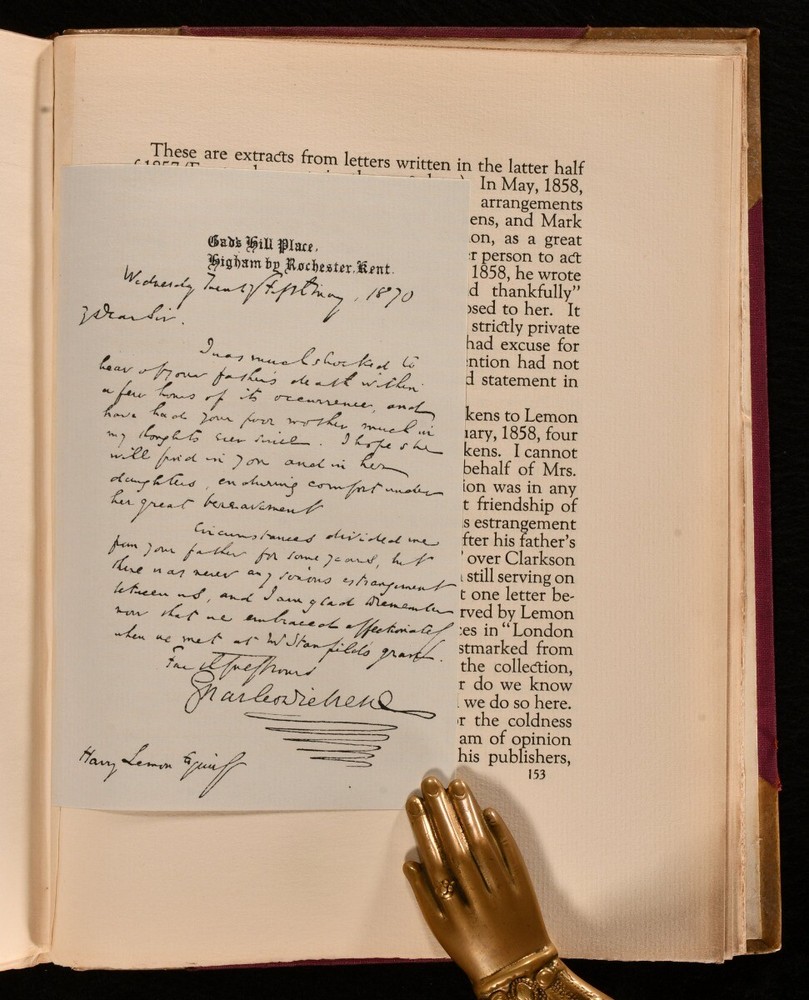 These are extracts from letters written in the latter half
In May, 1858,
arrangements
ens, and Mark
on, as a great
r person to act
1858, he wrote
d thankfully”
osed to her. It
strictly private
had excuse for
ention had not
d statement in
kens to Lemon
uary, 1858, four
kens. I cannot
behalf of Mrs.
ion was in any
t friendship of
s estrangement
fter his father's
over Clarkson
still serving on
t one letter be-
rved by Lemon
es in “London
stmarked from
the collection,
r do we know
we do so here.
r the coldness
am of opinion
his publishers,
153
Gad's Hill Place,
Higham by Rochester, Kent.
Wednesday Twenty Fifth May, 1870
My Dear Sir.
I was much shocked to
hear of your father's death within
a few hours of its occurrence, and
have had your poor mother much in
my thoughts ever since. I hope she
will find in you and in her
daughters, enduring comfort under
her great bereavement
Circumstances divided me
from your father for some years, but
there was never any serious estrangement
between us, and I am glad to remember
now that we embraced affectionately
when we met at Stanfield's grave.
Faithfully yours
Charles Dickens
Harry Lemon Esquire